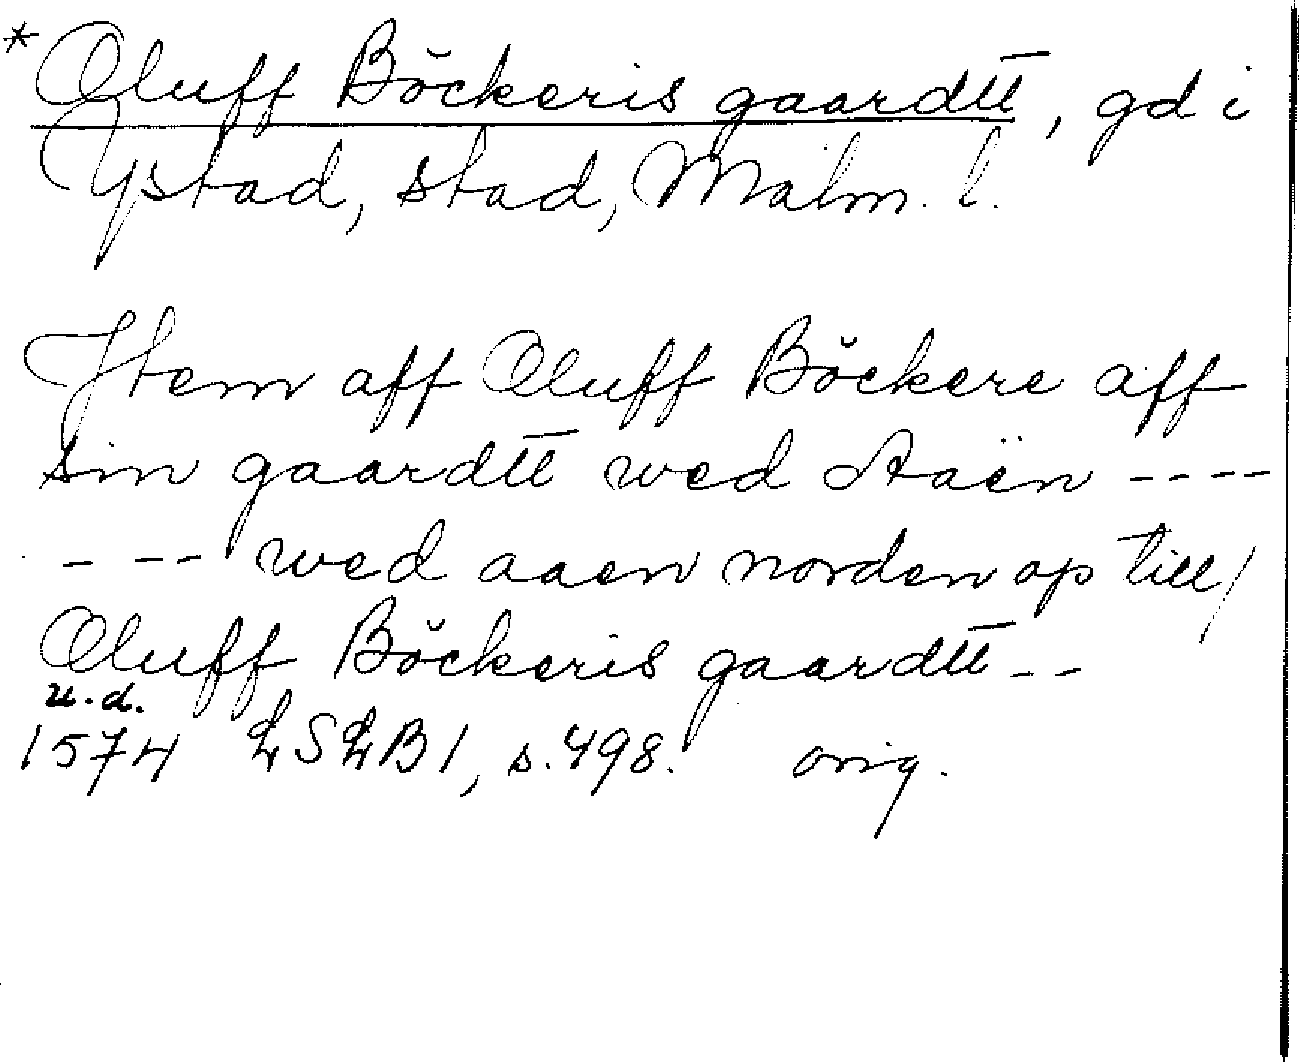 * Oluff Böckeris gaardtt, gd i
Ystad, stad, Malm. l.
Jtem aff Oluff Böckere aff
sin gaardtt wed Aaën ----
--- wed aaen norden op till/
Oluff Böckeris gaardtt --
u.d.
1574 LSLB1, s. 498. orig.